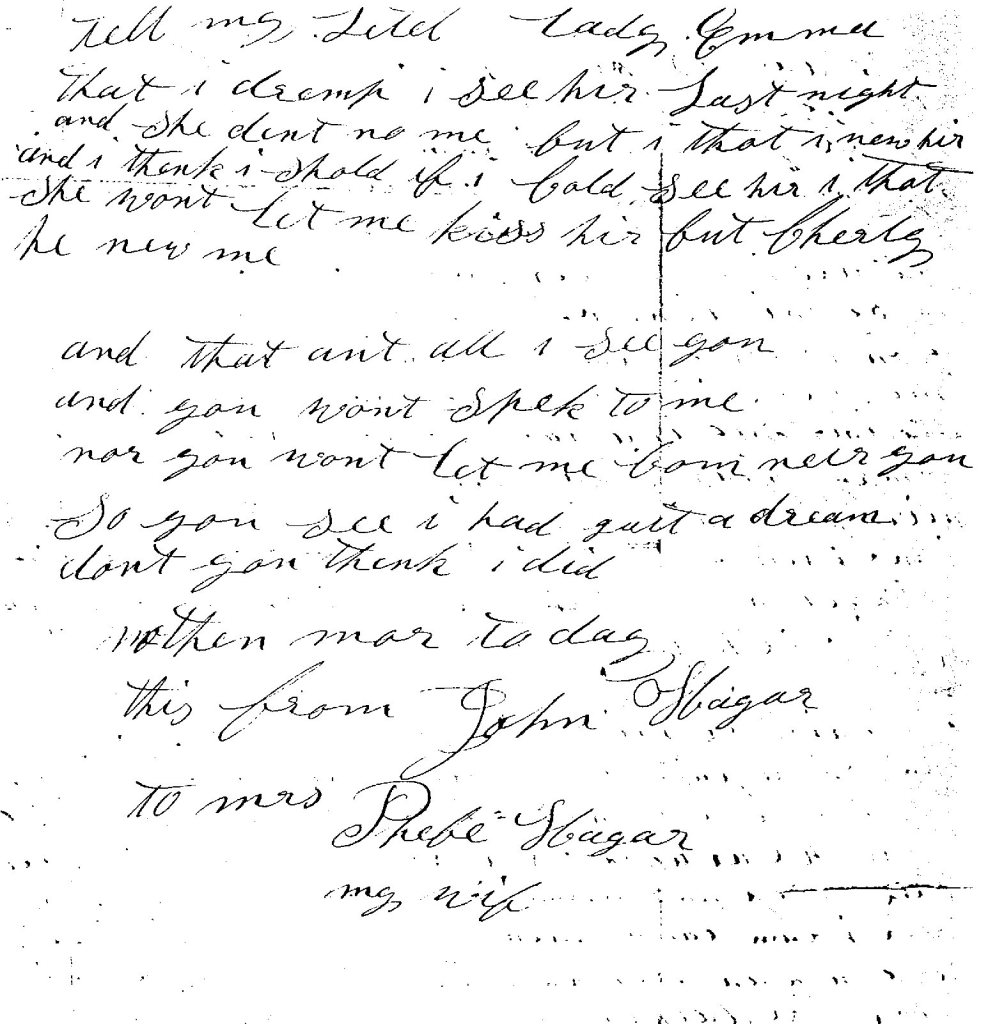 tell my Litel Lady Emma
that i dremp i see hir Last night
and she dont no me but i that i new hir
and i thenk i shold if i Cold see hir i that
she wont Let me kiss hir but Cherly
he new me
and that aint all i see you
and you wont spek to me
nor you wont Let me Com neer you
So you see i had quit a dream
dont you thenk i did
nothen mor to day
this from John Hagar
to mrs Phebe Hagar
my wife